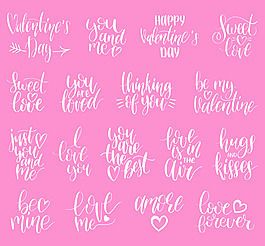 Valentine's
Day
you
and
me
HAPPY
Valentine's
DAY
Sweet
love
Sweet
love
you
are
loved
thinking
of you
be my
valentine
just
you
and
me
I
love
you
you
are the
best
love
is in
the
air
hugs
AND
kisses
bee
mine
love
me
amore
love
forever